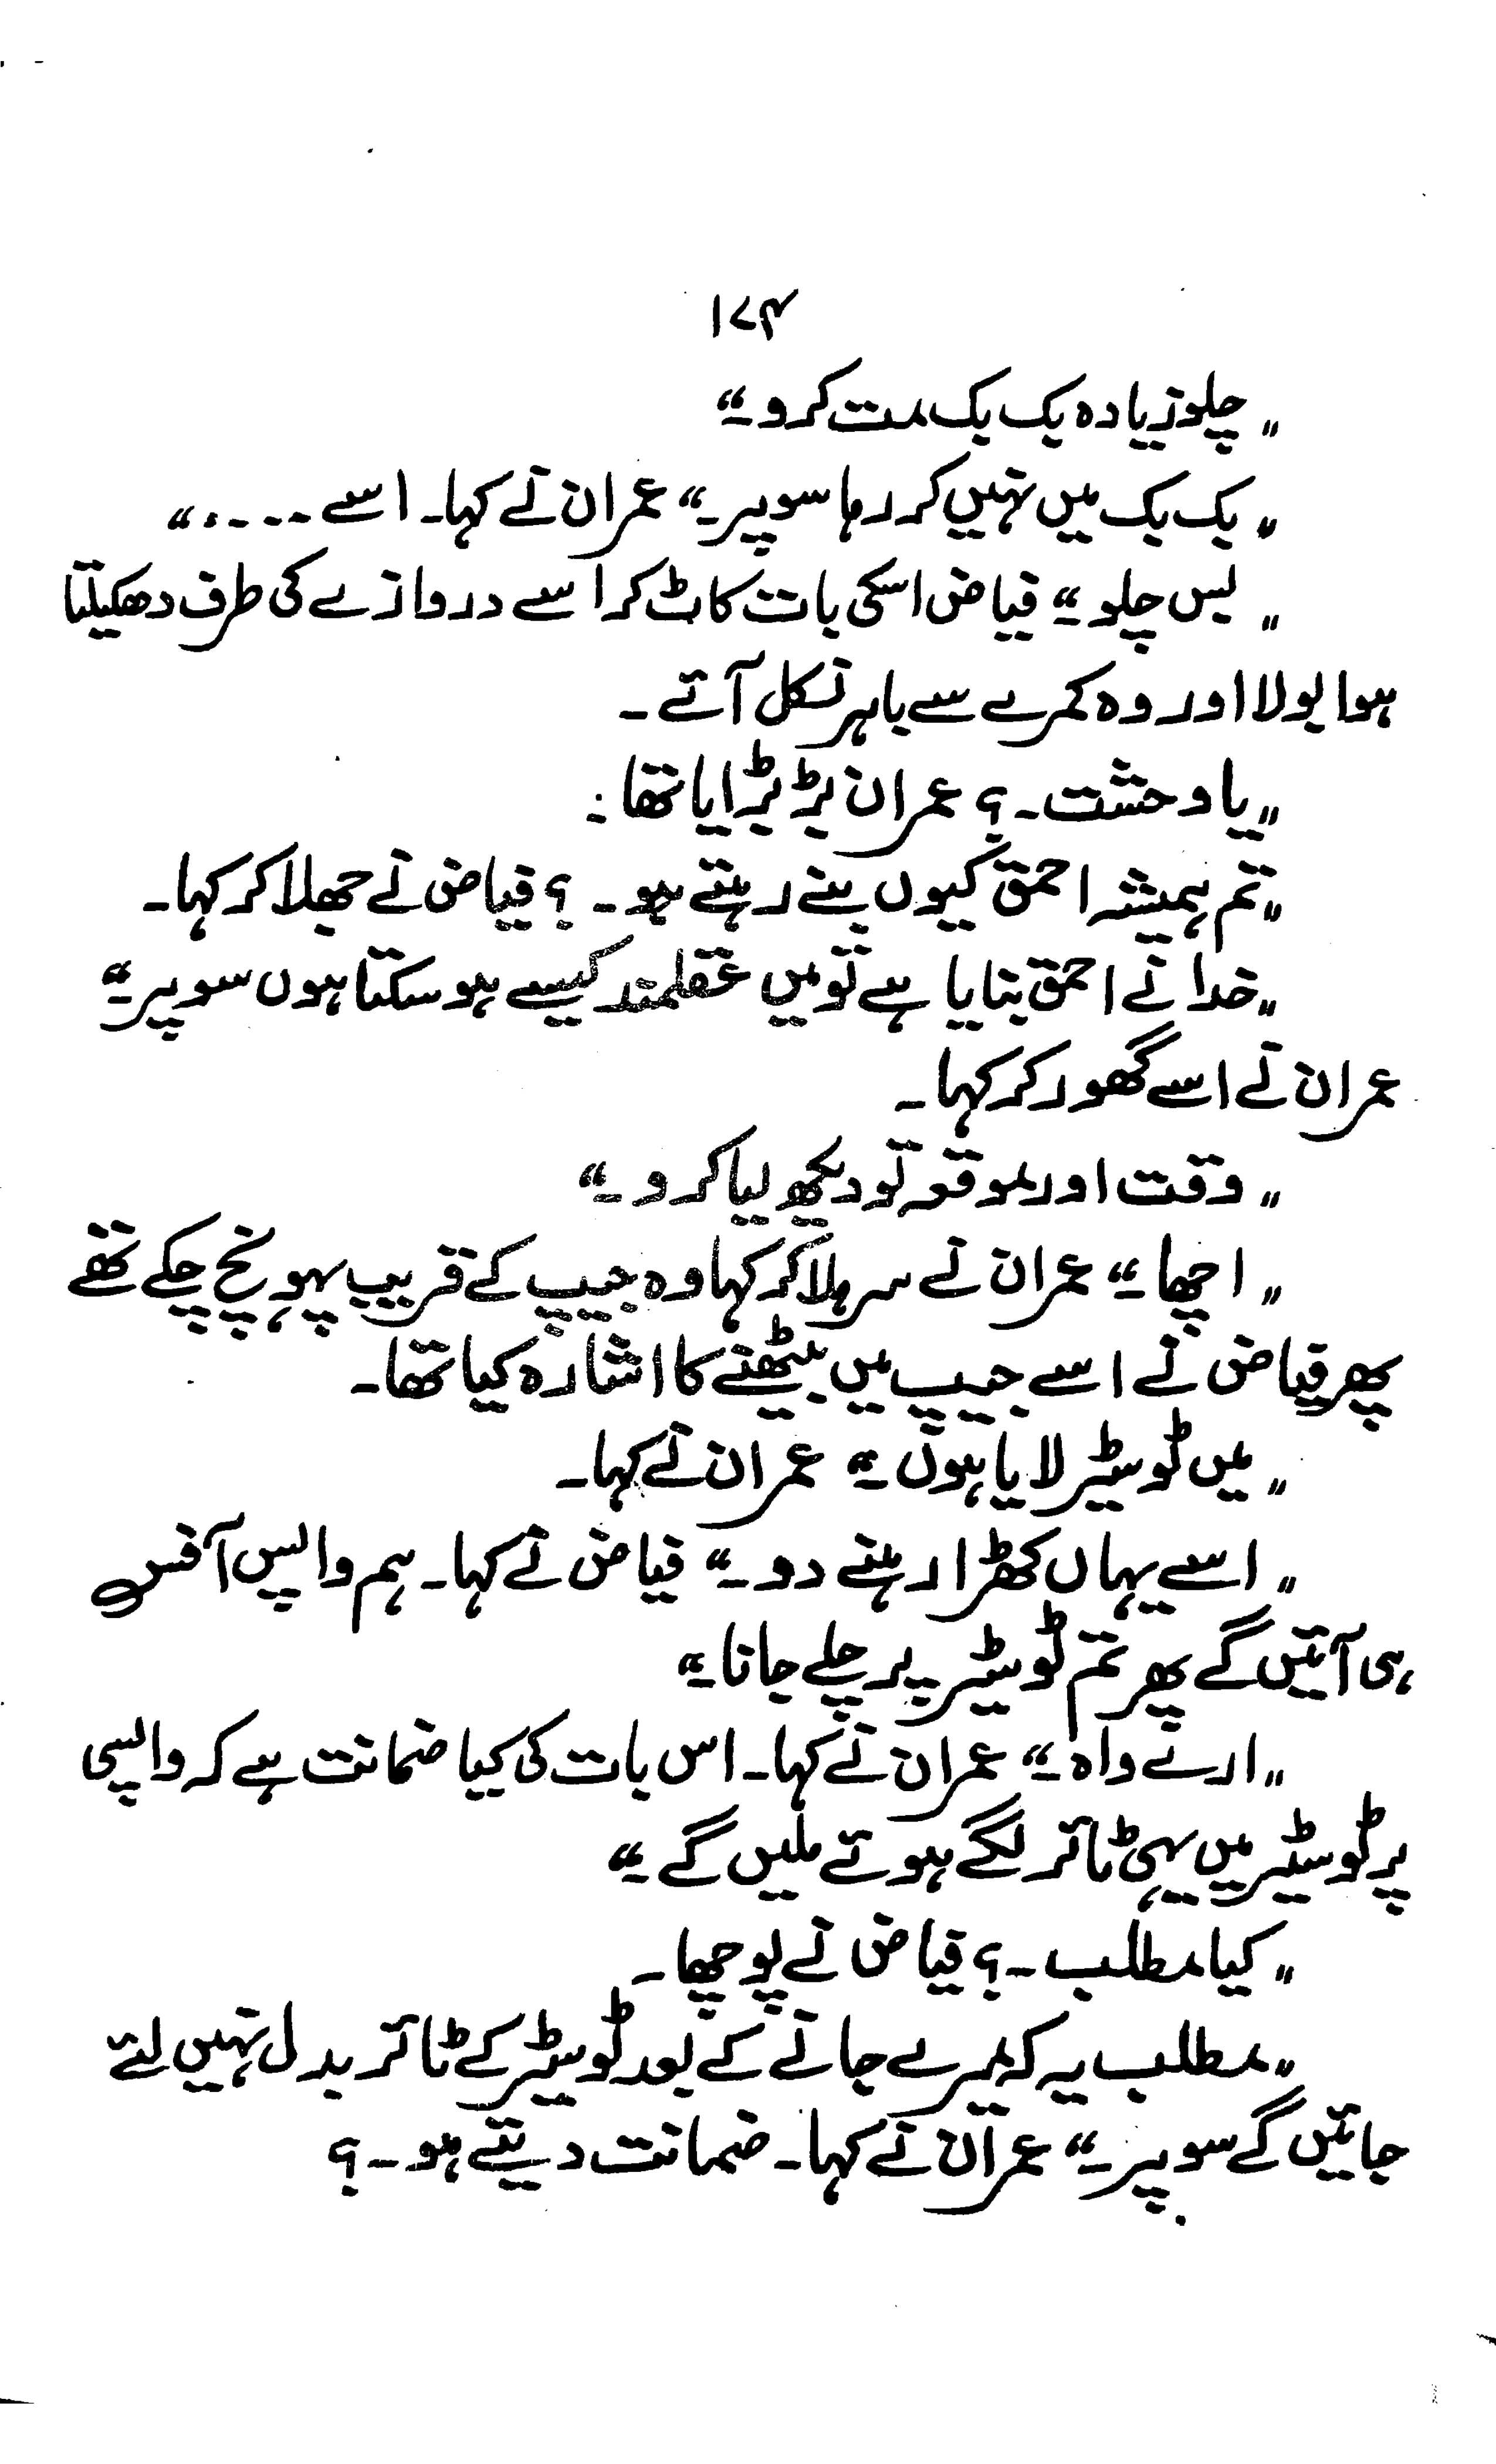 ۱۷۴
”چلو زیادہ بک بک مت کرو۔“
”بک بک میں نہیں کر رہا سوپر۔“ عمران نے کہا۔ اسے ....“
”بس چلو۔“ فیاض اسکی بات کاٹ کر اسے دروازے کی طرف دھکیلتا
ہوا بولا اور وہ کمرے سے باہر نکل آئے۔
”یا وحشت۔؟ عمران بڑبڑایا تھا۔
”تم ہمیشہ احمق کیوں بنے رہتے ہو۔؟ فیاض نے جھلا کر کہا۔
”خدا نے احمق بنایا ہے تو میں عقلمند کیسے ہو سکتا ہوں سوپر۔“
عمران نے اسے گھور کر کہا۔
”وقت اور موقعہ تو دیکھ لیا کرو۔“
”اچھا۔“ عمران نے سر ہلا کر کہا وہ جیپ کے قریب پہونچ چکے تھے
پھر فیاض نے اسے جیپ میں بیٹھنے کا اشارہ کیا تھا۔
”میں ٹوسیٹر لایا ہوں۔“ عمران نے کہا۔
”اسے یہاں کھڑا رہنے دو۔“ فیاض نے کہا۔ ہم واپس آفس
ہی آئیں گے پھر تم ٹوسیٹر پر چلے جانا۔“
”ارے واہ۔“ عمران نے کہا۔ اس بات کی کیا ضمانت ہے کہ واپسی
پر ٹوسیٹر میں یہی ٹائر لگے ہوئے ملیں گے۔“
”کیا مطلب۔؟ فیاض نے پوچھا۔
”مطلب یہ کہ میرے جانے کے بعد ٹوسیٹر کے ٹائر بدل نہیں لئے
جائیں گے سوپر۔“ عمران نے کہا۔ ضمانت دیتے ہو۔؟